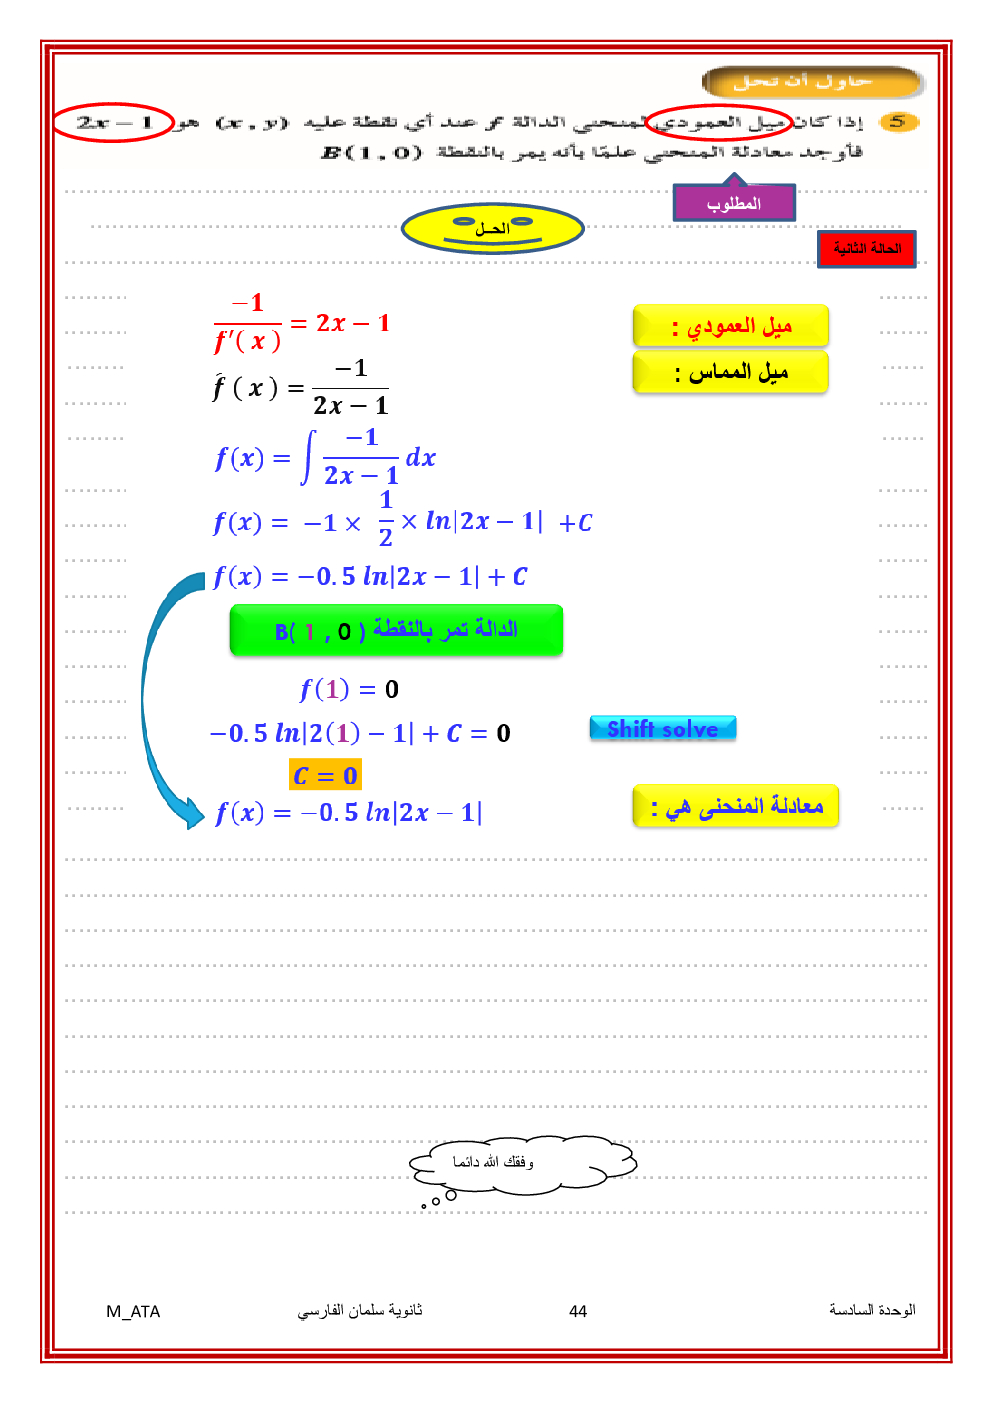 حاول أن تحل
5 إذا كان ميل العمودي لمنحنى الدالة f عند أي نقطة عليه (x , y) هو 2x − 1
فأوجد معادلة المنحنى علمًا بأنه يمر بالنقطة B(1 , 0)
المطلوب
الحــل
الحالة الثانية
ميل العمودي :
−1/f′( x ) = 2x − 1
ميل المماس :
f́ ( x ) = −1/(2x − 1)
f(x) = ∫ −1/(2x − 1) dx
f(x) = −1 × 1/2 × ln|2x − 1| +C
f(x) = −0.5 ln|2x − 1| + C
الدالة تمر بالنقطة B( 1 , 0 )
f(1) = 0
−0.5 ln|2(1) − 1| + C = 0
Shift solve
C = 0
معادلة المنحنى هي :
f(x) = −0.5 ln|2x − 1|
وفقك الله دائما
الوحدة السادسة 44 ثانوية سلمان الفارسي M_ATA